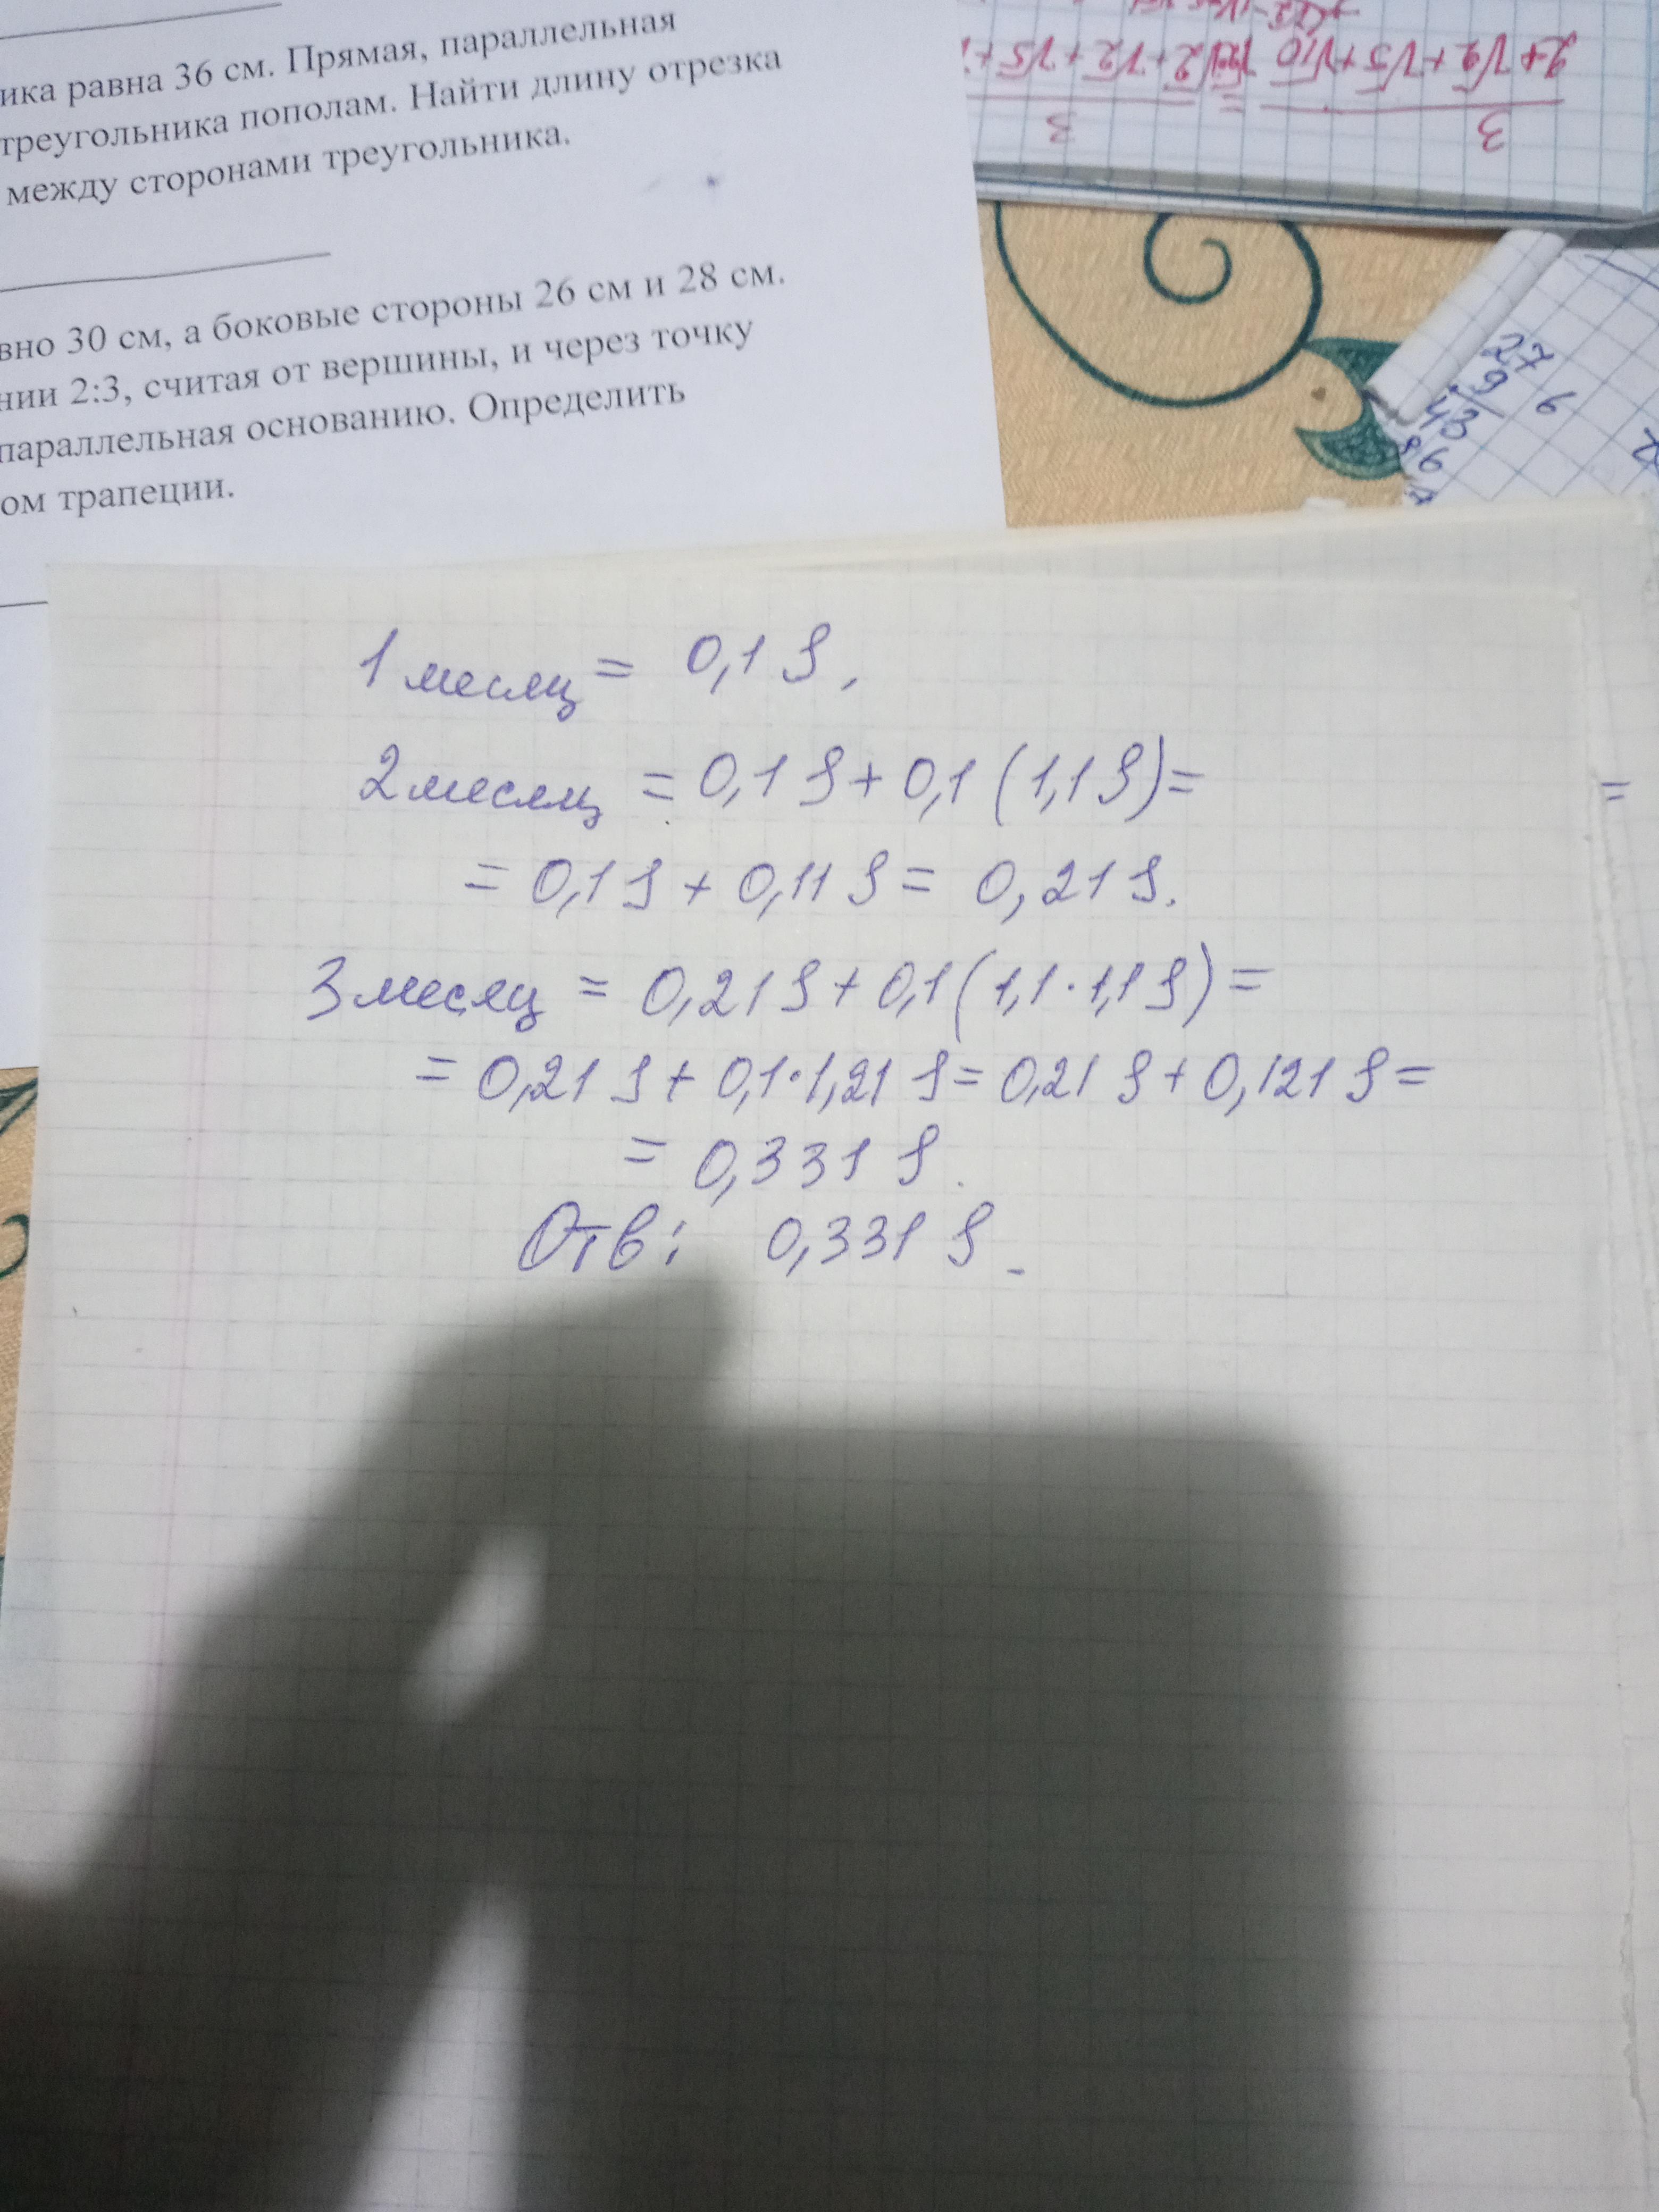 ика равна 36 см. Прямая, параллельная
треугольника пополам. Найти длину отрезка
между сторонами треугольника.
вно 30 см, а боковые стороны 26 см и 28 см.
нии 2:3, считая от вершины, и через точку
параллельная основанию. Определить
ом трапеции.
3
3
2+√2+√5+√10
=
27
9
6
43
86
1 месяц = 0,1 S.
2 месяц = 0,1 S + 0,1 (1,1 S) =
= 0,1 S + 0,11 S = 0,21 S.
3 месяц = 0,21 S + 0,1 (1,1 · 1,1 S) =
= 0,21 S + 0,1 · 1,21 S = 0,21 S + 0,121 S =
= 0,331 S.
Отв: 0,331 S.
=